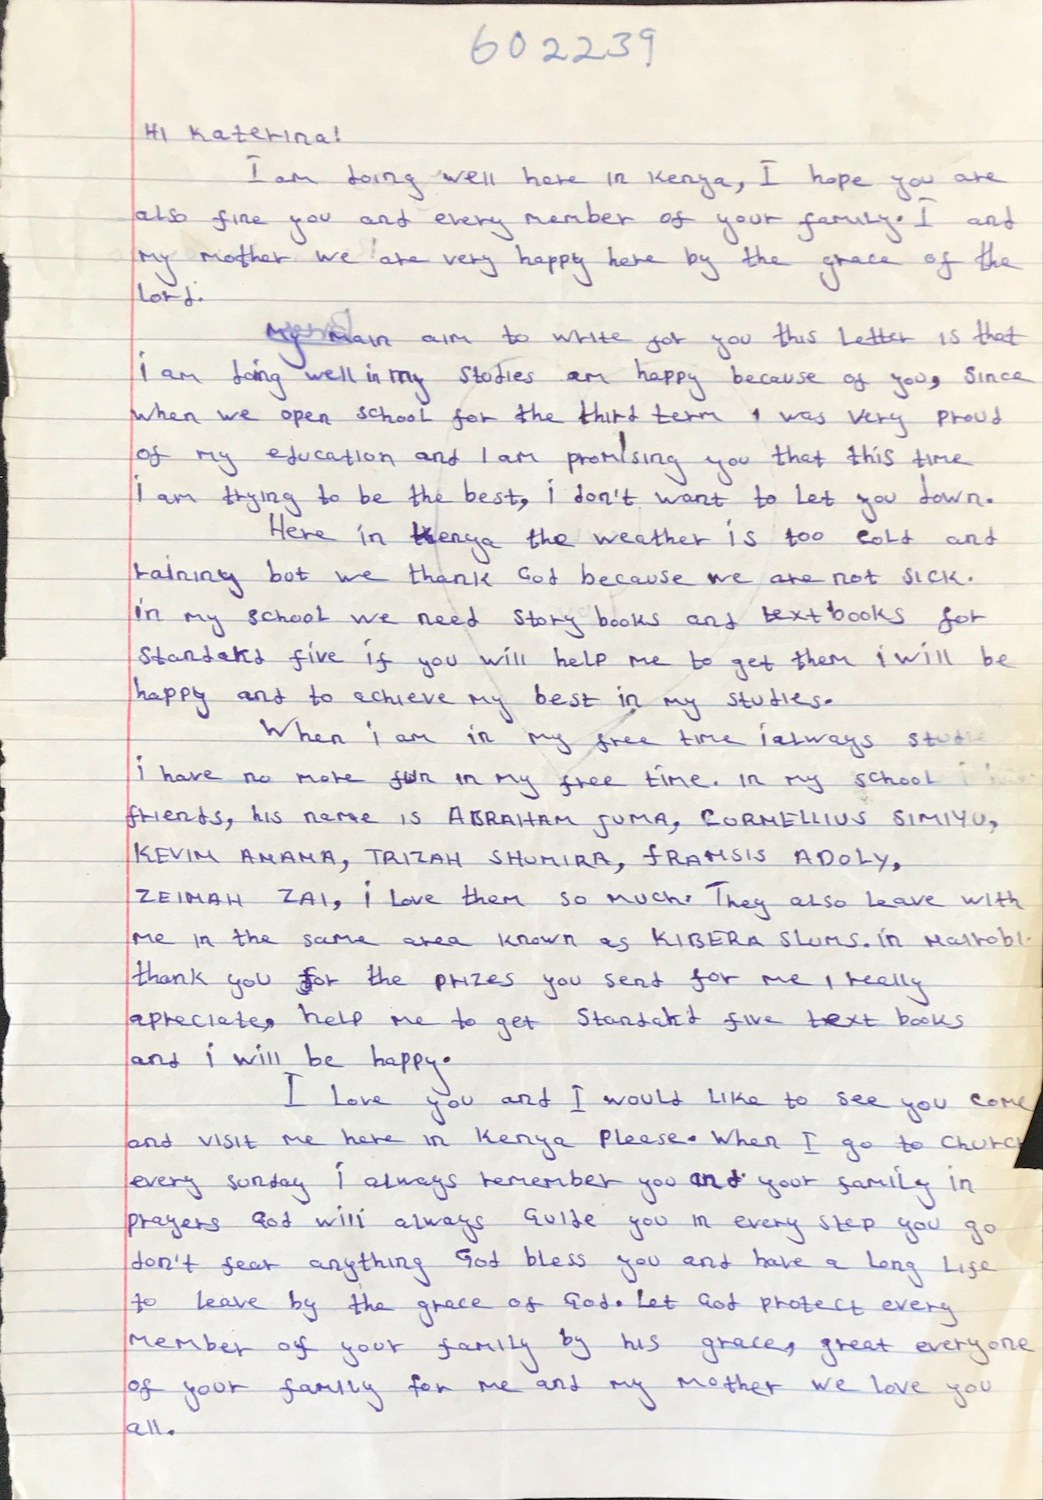 602239
Hi Katerina!
I am doing well here in Kenya, I hope you are
also fine you and every member of your family. I and
my mother we are very happy here by the grace of the
Lord.
My main aim to write for you this Letter is that
i am doing well in my studies am happy because of you, since
when we open school for the third term i was very proud
of my education and I am promising you that this time
i am trying to be the best, i don't want to let you down.
Here in Kenya the weather is too cold and
raining bot we thank God because we are not sick.
in my school we need story books and text books for
Standard five if you will help me to get them i will be
happy and to achieve my best in my studies.
When i am in my free time i always
i have no more fun in my free time. in my school i
friends, his name is ABRAHAM JUMA, CORNELLIUS SIMIYU,
KEVIN AMAMA, TRIZAH SHUMIRA, FRANSIS ADOLY,
ZEINAH ZAI, i love them so much. They also leave with
me in the same area known as KIBERA Slums. in Nairobi.
thank you for the prizes you send for me i really
apreciate, help me to get Standard five text books
and i will be happy.
I Love you and I would like to see you come
and visit me here in Kenya please. When I go to Church
every sunday i always remember you and your family in
prayers God will always Guide you in every step you go
don't fear anything God bless you and have a long life
to leave by the grace of God. Let God protect every
member of your family by his grace, great everyone
of your family for me and my mother we love you
all.